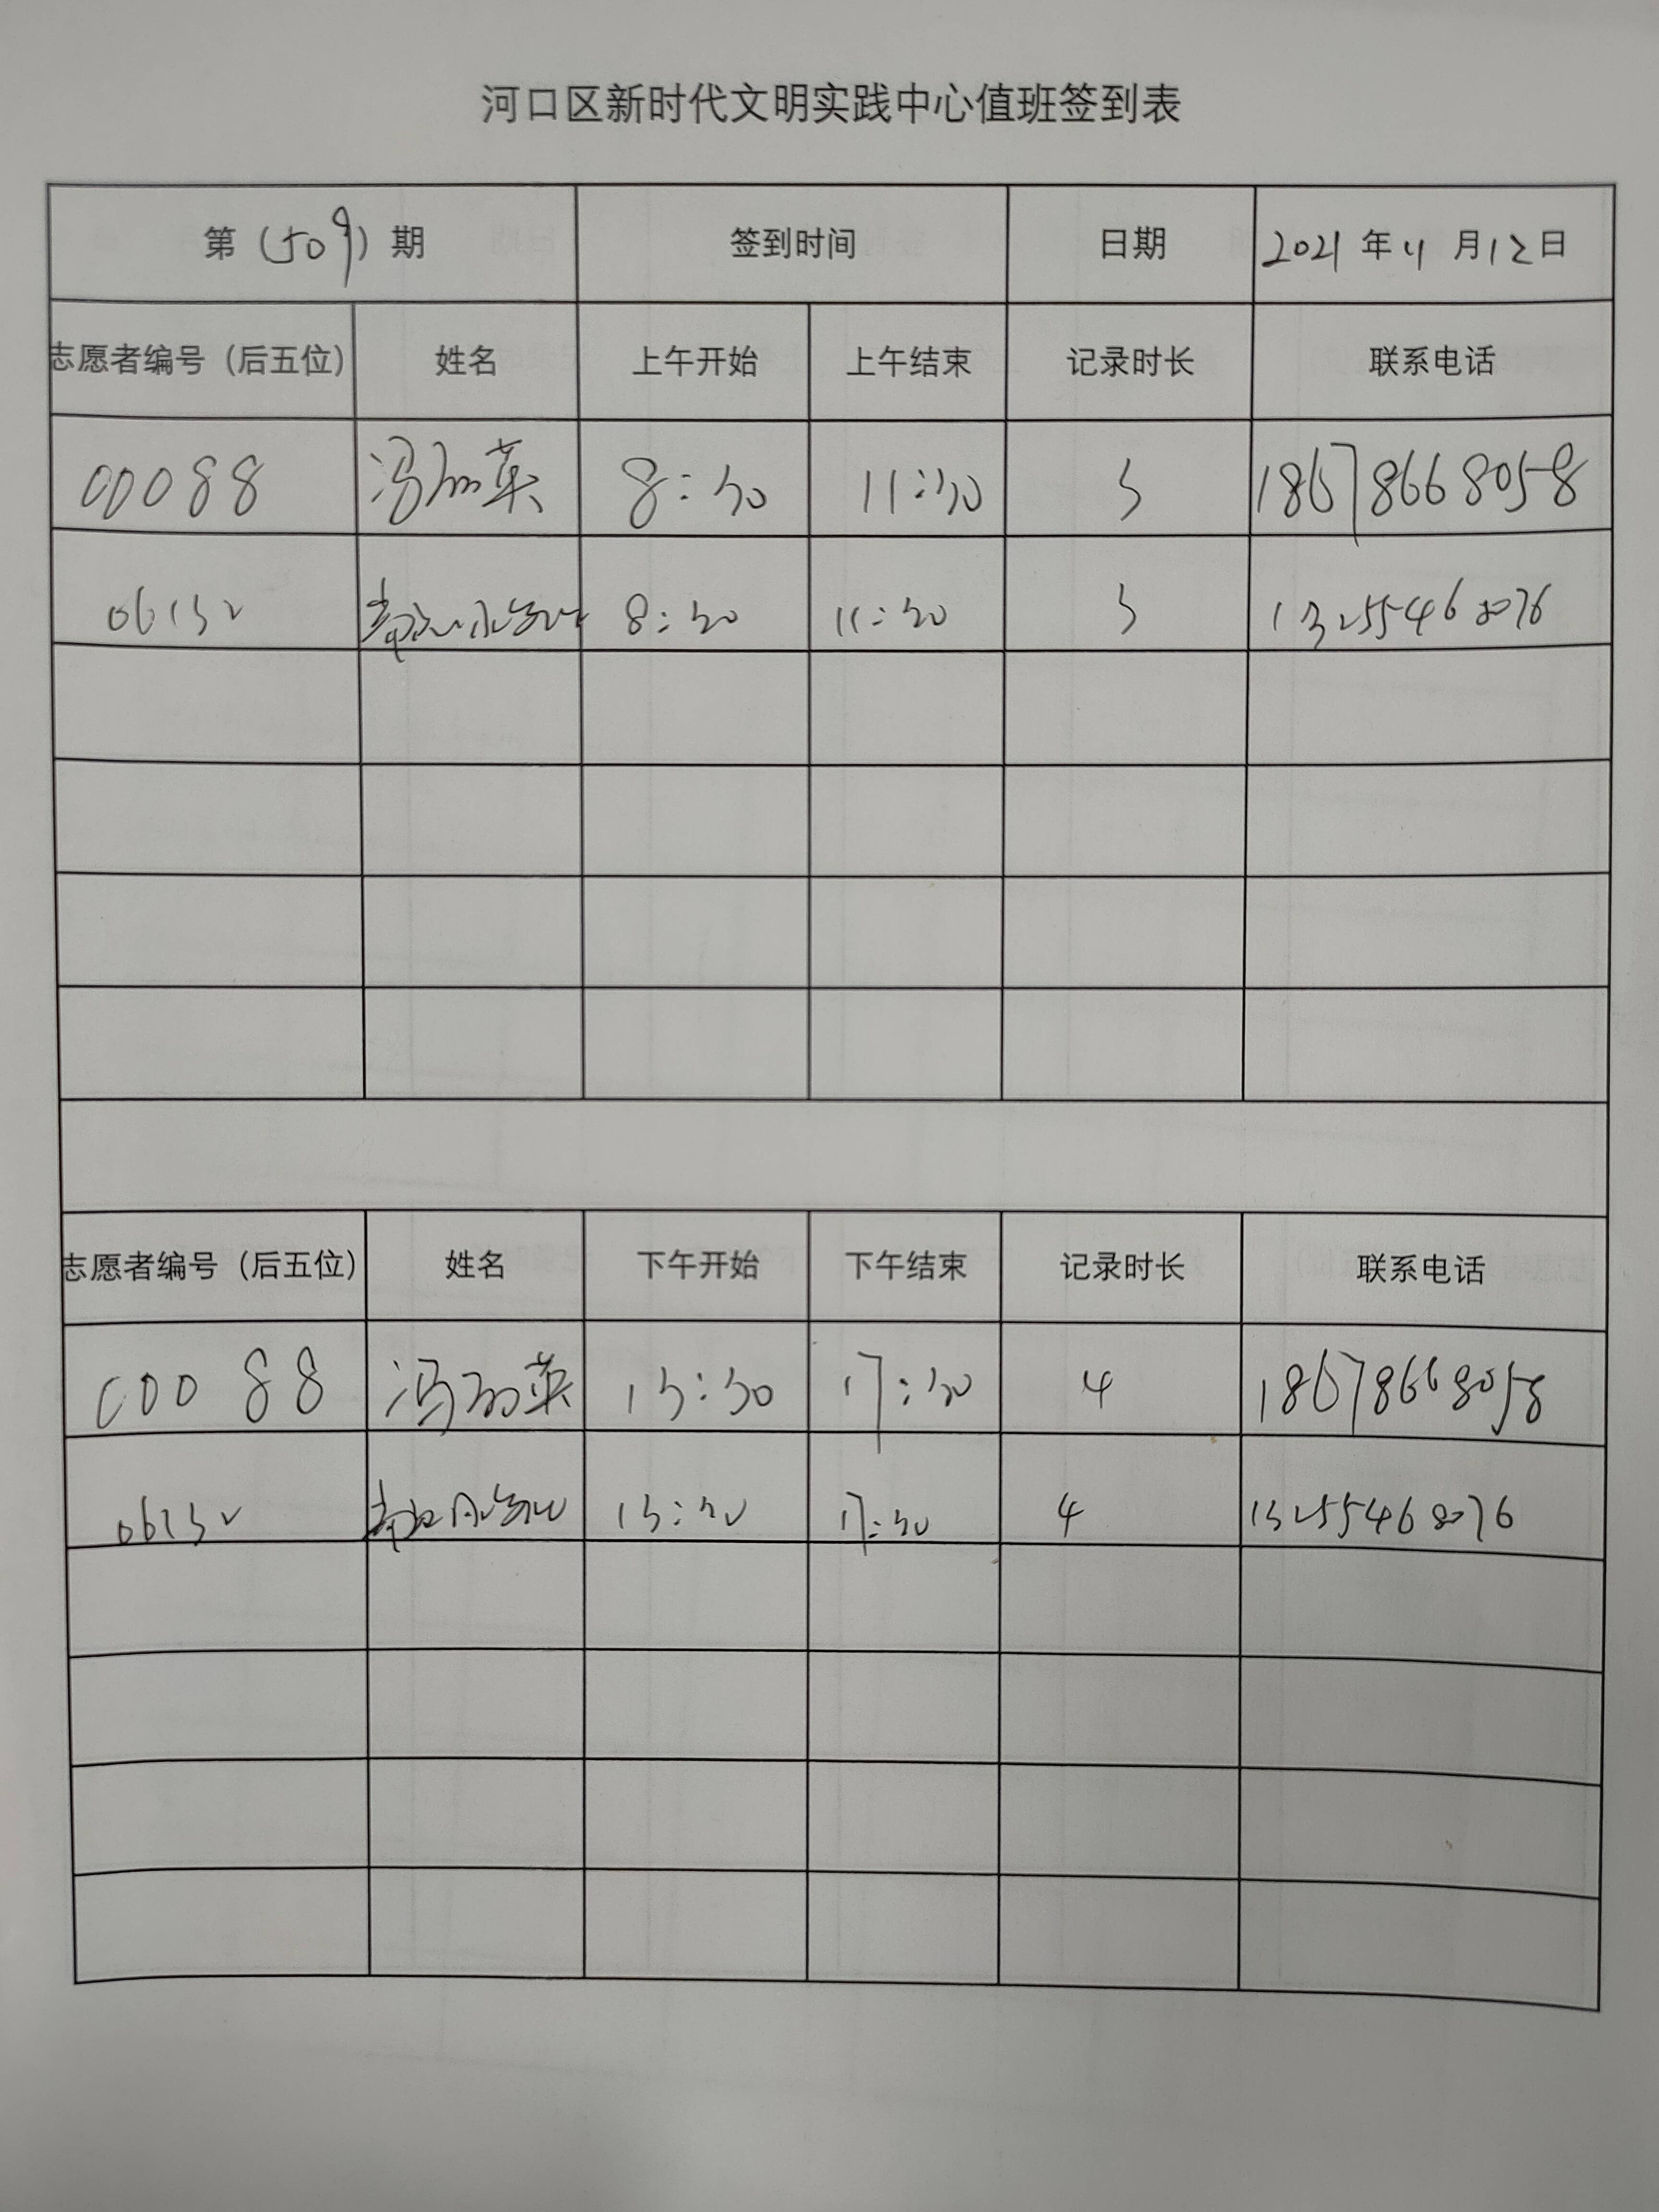 河口区新时代文明实践中心值班签到表
第（509）期 签到时间 日期 2021年11月12日
志愿者编号（后五位） 姓名 上午开始 上午结束 记录时长 联系电话
00088 冯丽英 8:30 11:30 3 18678668058
06132 8:30 11:30 3 13255468076
志愿者编号（后五位） 姓名 下午开始 下午结束 记录时长 联系电话
00088 冯丽英 13:30 17:30 4 18678668058
06132 13:30 17:30 4 13255468076